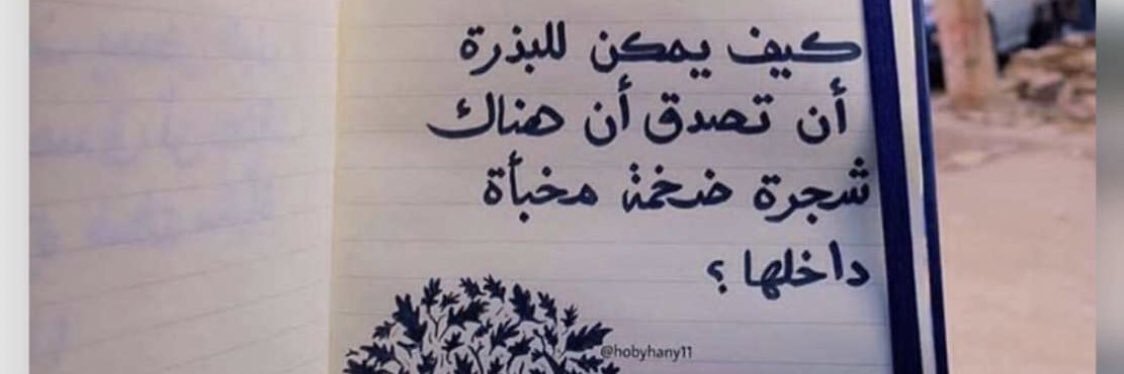 كيف يمكن للبذرة
أن تصدق أن هناك
شجرة ضخمة مخبأة
داخلها ؟
@hobyhany11